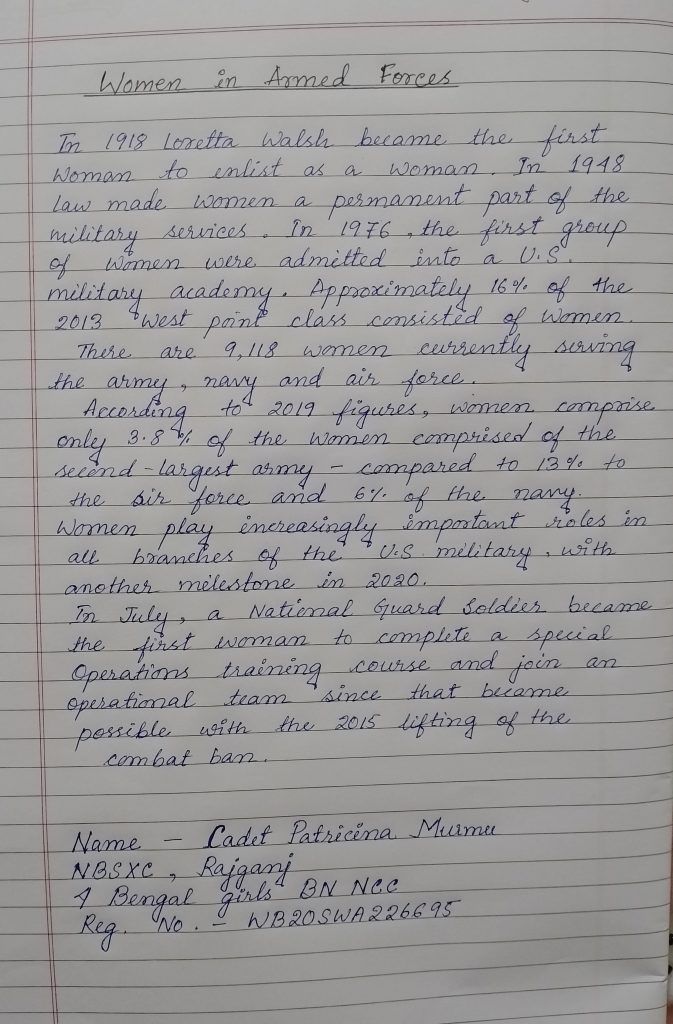 Women in Armed Forces
In 1918 Loretta Walsh became the first
Woman to enlist as a woman. In 1948
law made women a permanent part of the
military services. In 1976, the first group
of Women were admitted into a U.S.
military academy. Approximately 16% of the
2013 West point class consisted of women.
There are 9,118 women currently serving
the army, navy and air force.
According to 2019 figures, women comprise
only 3.8% of the women comprised of the
second-largest army - compared to 13% to
the air force and 6% of the navy.
Women play increasingly important roles in
all branches of the U.S. military, with
another milestone in 2020.
In July, a National Guard Soldier became
the first woman to complete a special
Operations training course and join an
operational team since that became
possible with the 2015 lifting of the
combat ban.
Name - Cadet Patricina Murmu
NBSXC, Rajganj
4 Bengal girls BN NCC
Reg. No. - WB20SWA226695